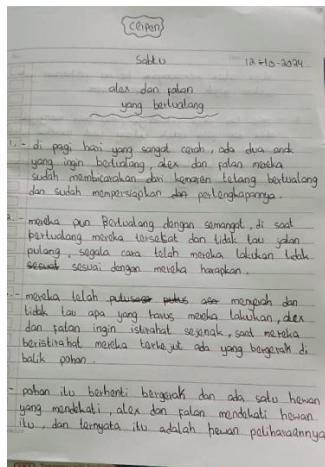 (cerpen)
Sabtu 12-10-2024
alex dan falan
yang bertualang
1. - di pagi hari yang sangat cerah, ada dua anak
yang ingin bertualang, alex dan falan mereka
sudah membicarakan dari kemaren tetang bertualang
dan sudah mempersiapkan dan perlengkapannya.
2. - mereka pun Bertualang dengan semangat, di saat
bertualang mereka tersesat dan tidak tau jalan
pulang, segala cara telah mereka lakukan tidak
sesuai sesuai dengan mereka harapkan.
- mereka telah putus menyerah dan
tidak tau apa yang harus mereka lakukan, alex
dan falan ingin istirahat sejenak, saat mereka
beristirahat mereka terkejut ada yang bergerak di
balik pohon.
- pohon itu berhenti bergerak dan ada satu hewan
yang mendekati, alex dan falan mendekati hewan
itu, dan ternyata itu adalah hewan peliharaannya